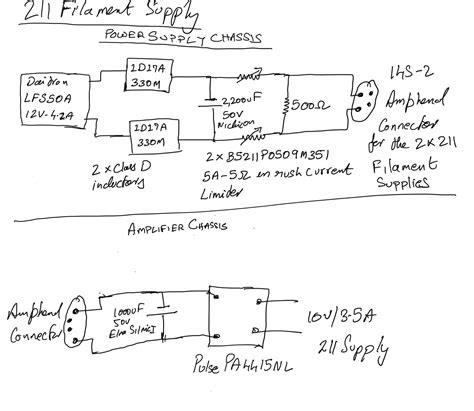 211 Filament Supply
POWER SUPPLY CHASSIS
Daitron
LFS50A
12V-4.2A
1D17A
330M
1D17A
330M
2,200uF
50V
Nichicon
500Ω
14S-2
Amphenol
Connector
for the 2x211
Filament
Supplies
2 x Class D
inductors
2 x B5211P0509M351
5A-5Ω in rush Current
Limiter
AMPLIFIER CHASSIS
Amphenol
Connector
1000uF
50V
Elna Silmic I
10V/3.5A
211 Supply
Pulse PA4415NL